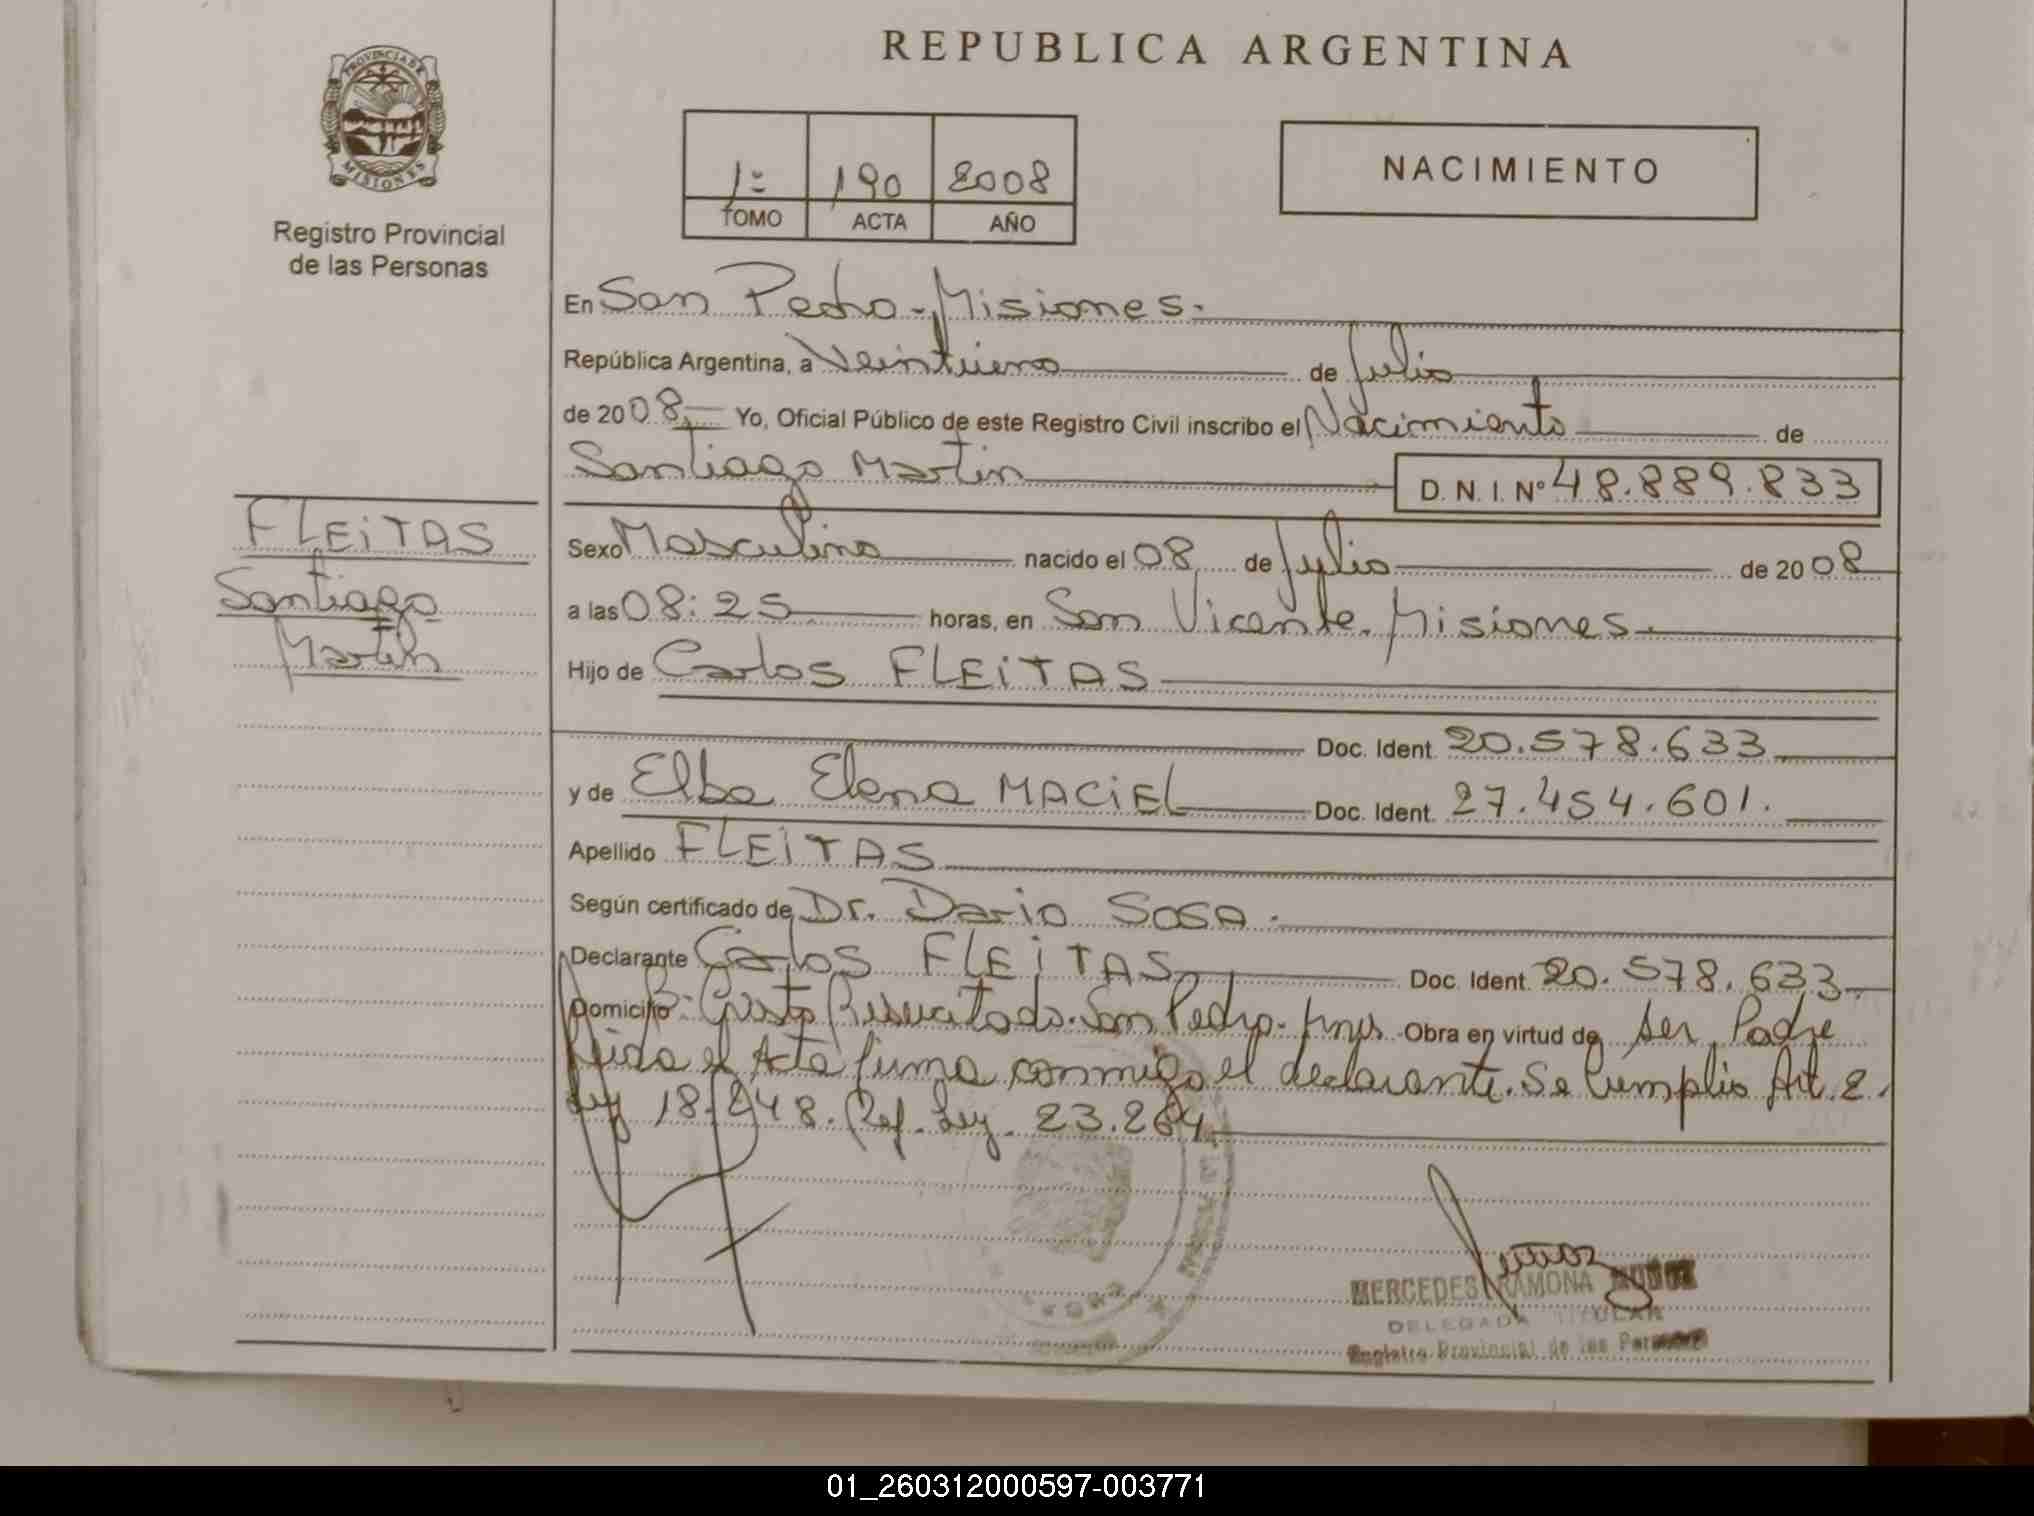 REPUBLICA ARGENTINA
PROVINCIA DE MISIONES
Registro Provincial
de las Personas
1º 190 2008
TOMO ACTA AÑO
NACIMIENTO
En San Pedro - Misiones.
República Argentina, a Veintiuno de Julio
de 2008 Yo, Oficial Público de este Registro Civil inscribo el Nacimiento de
Santiago Martin D. N. I. Nº 48.889.833
FLEiTAS
Santiago
Martin
Sexo Masculino nacido el 08 de Julio de 2008
a las 08:25 horas, en San Vicente. Misiones.
Hijo de Carlos FLEiTAS
Doc. Ident. 20.578.633
y de Elba Elena MACiEL Doc. Ident. 27.454.601.
Apellido FLEiTAS
Según certificado de Dr. Dario SOSA.
Declarante Carlos FLEiTAS Doc. Ident. 20.578.633
Domicilio Bº Cristo Resucitado. San Pedro. Mnes. Obra en virtud de ser Padre
leida el Acta firma conmigo el declarante. Se Cumplio Art. 2.
Ley 18.248. Ref. Ley. 23.264
MERCEDES RAMONA MUÑOZ
DELEGADA TITULAR
Registro Provincial de las Personas
01_260312000597-003771